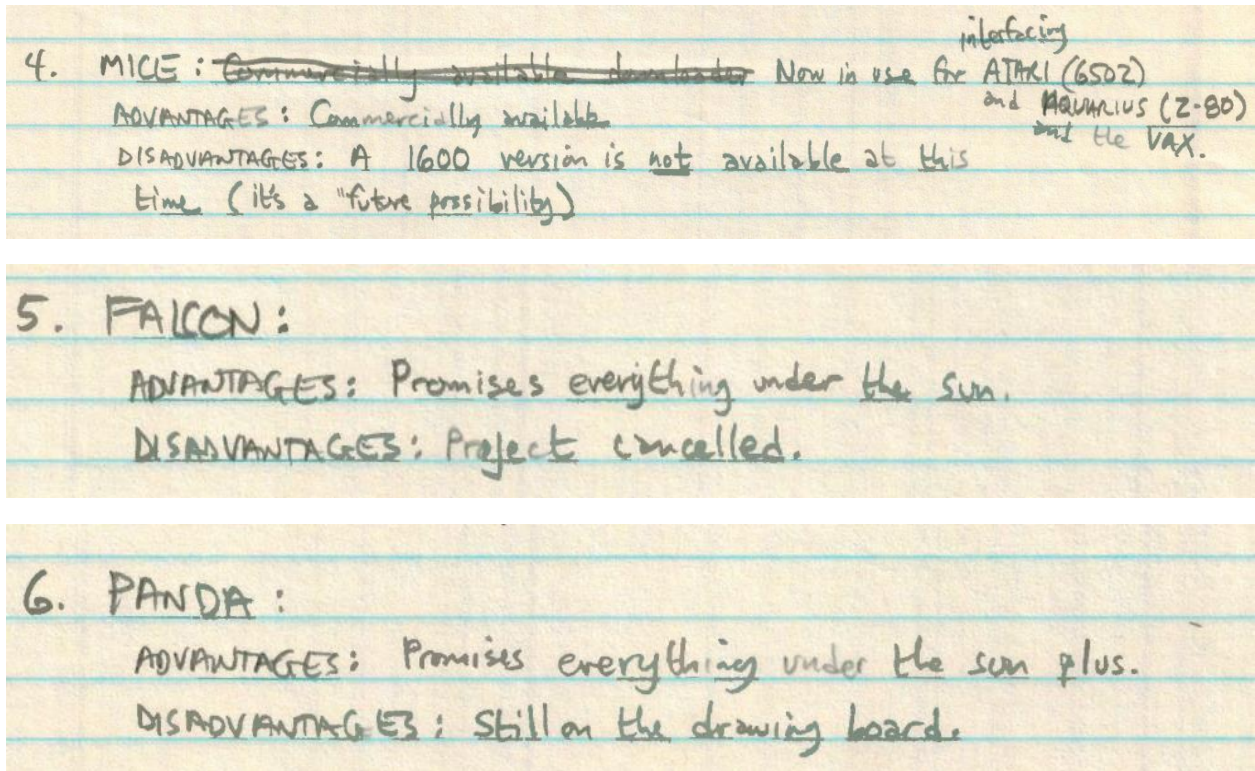 4. MICE: Commercially available downloader Now in use for interfacing ATARI (6502)
and AQUARIUS (Z-80)
and the VAX.
ADVANTAGES: Commercially available
DISADVANTAGES: A 1600 version is not available at this
time (it's a "future possibility)
5. FALCON:
ADVANTAGES: Promises everything under the sun.
DISADVANTAGES: Project cancelled.
6. PANDA:
ADVANTAGES: Promises everything under the sun plus.
DISADVANTAGES: Still on the drawing board.